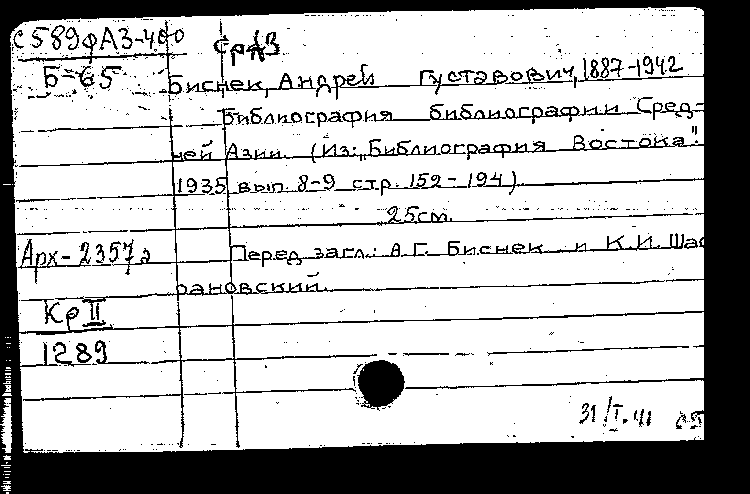 С589фАЗ-400
СрАЗ
Б-65
Биснек, Андрей Густавович, 1887-1942
Библиография библиографии Сред-
ней Азии. (Из: „Библиография Востока".
1935 вып. 8-9 стр. 152-194).
25см.
Арх-2357
Перед загл.: А.Г. Биснек и К.И. Ша
рановский.
Кр II
1289
31/I.41